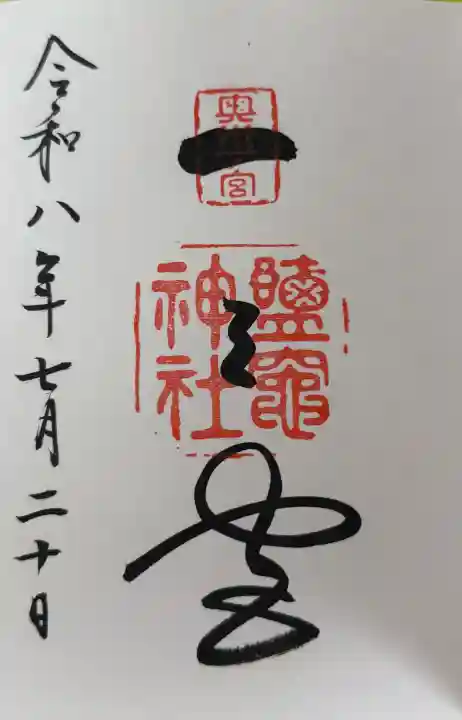 一之宮
奥 宮
鹽竈
神社
令和八年七月二十日